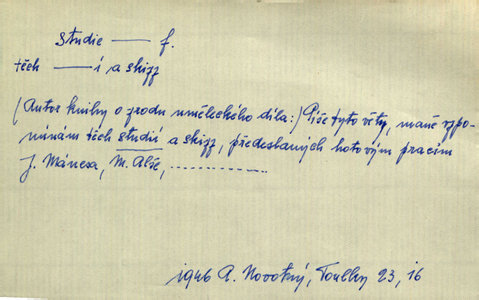 studie —— f.
těch —— í a skizz
(Autor knihy o zrodu uměleckého díla:) Píše tyto věty, maně vzpo-
mínám těch studií a skizz, předeslaných hotovým pracím
J. Mánesa, M. Alše, ..............
1946 A. Novotný, Toulky 23, 16